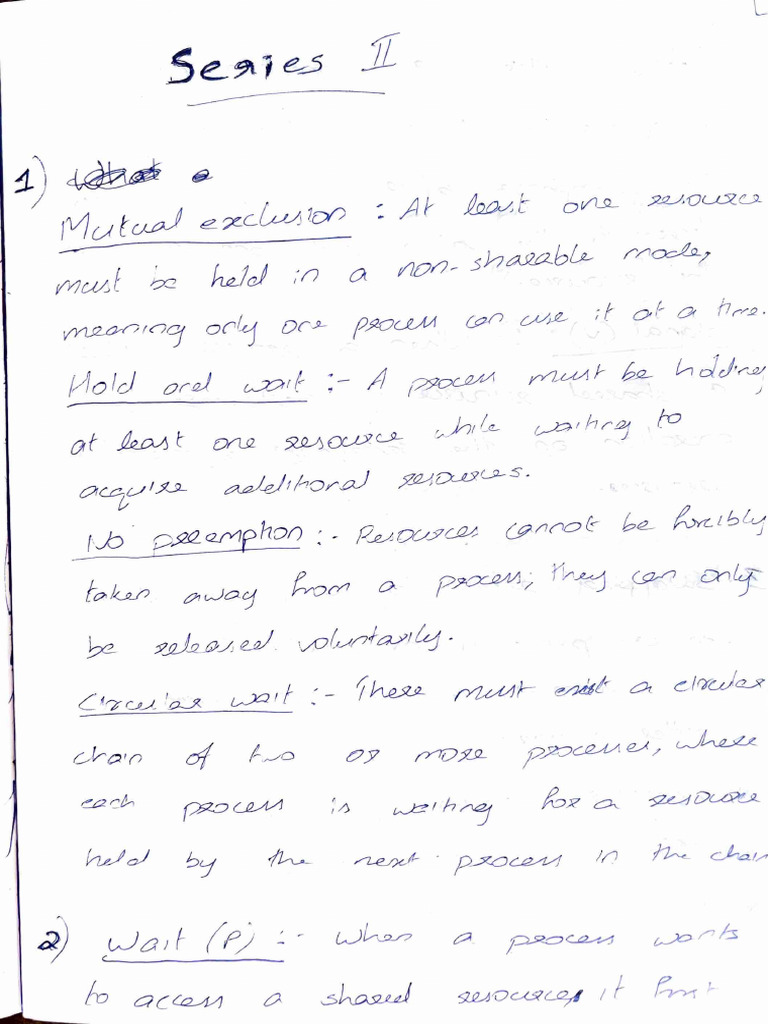 Series II
1)
Mutual exclusion : At least one resource
must be held in a non-sharable mode,
meaning only one process can use it at a time.
Hold and wait :- A process must be holding
at least one resource while waiting to
acquire additional resources.
No preemption :- Resources cannot be forcibly
taken away from a process, they can only
be released voluntarily.
Circular wait :- There must exist a circular
chain of two or more processes, where
each process is waiting for a resource
held by the next process in the chain
2) Wait (P) :- When a process wants
to access a shared resource, it first